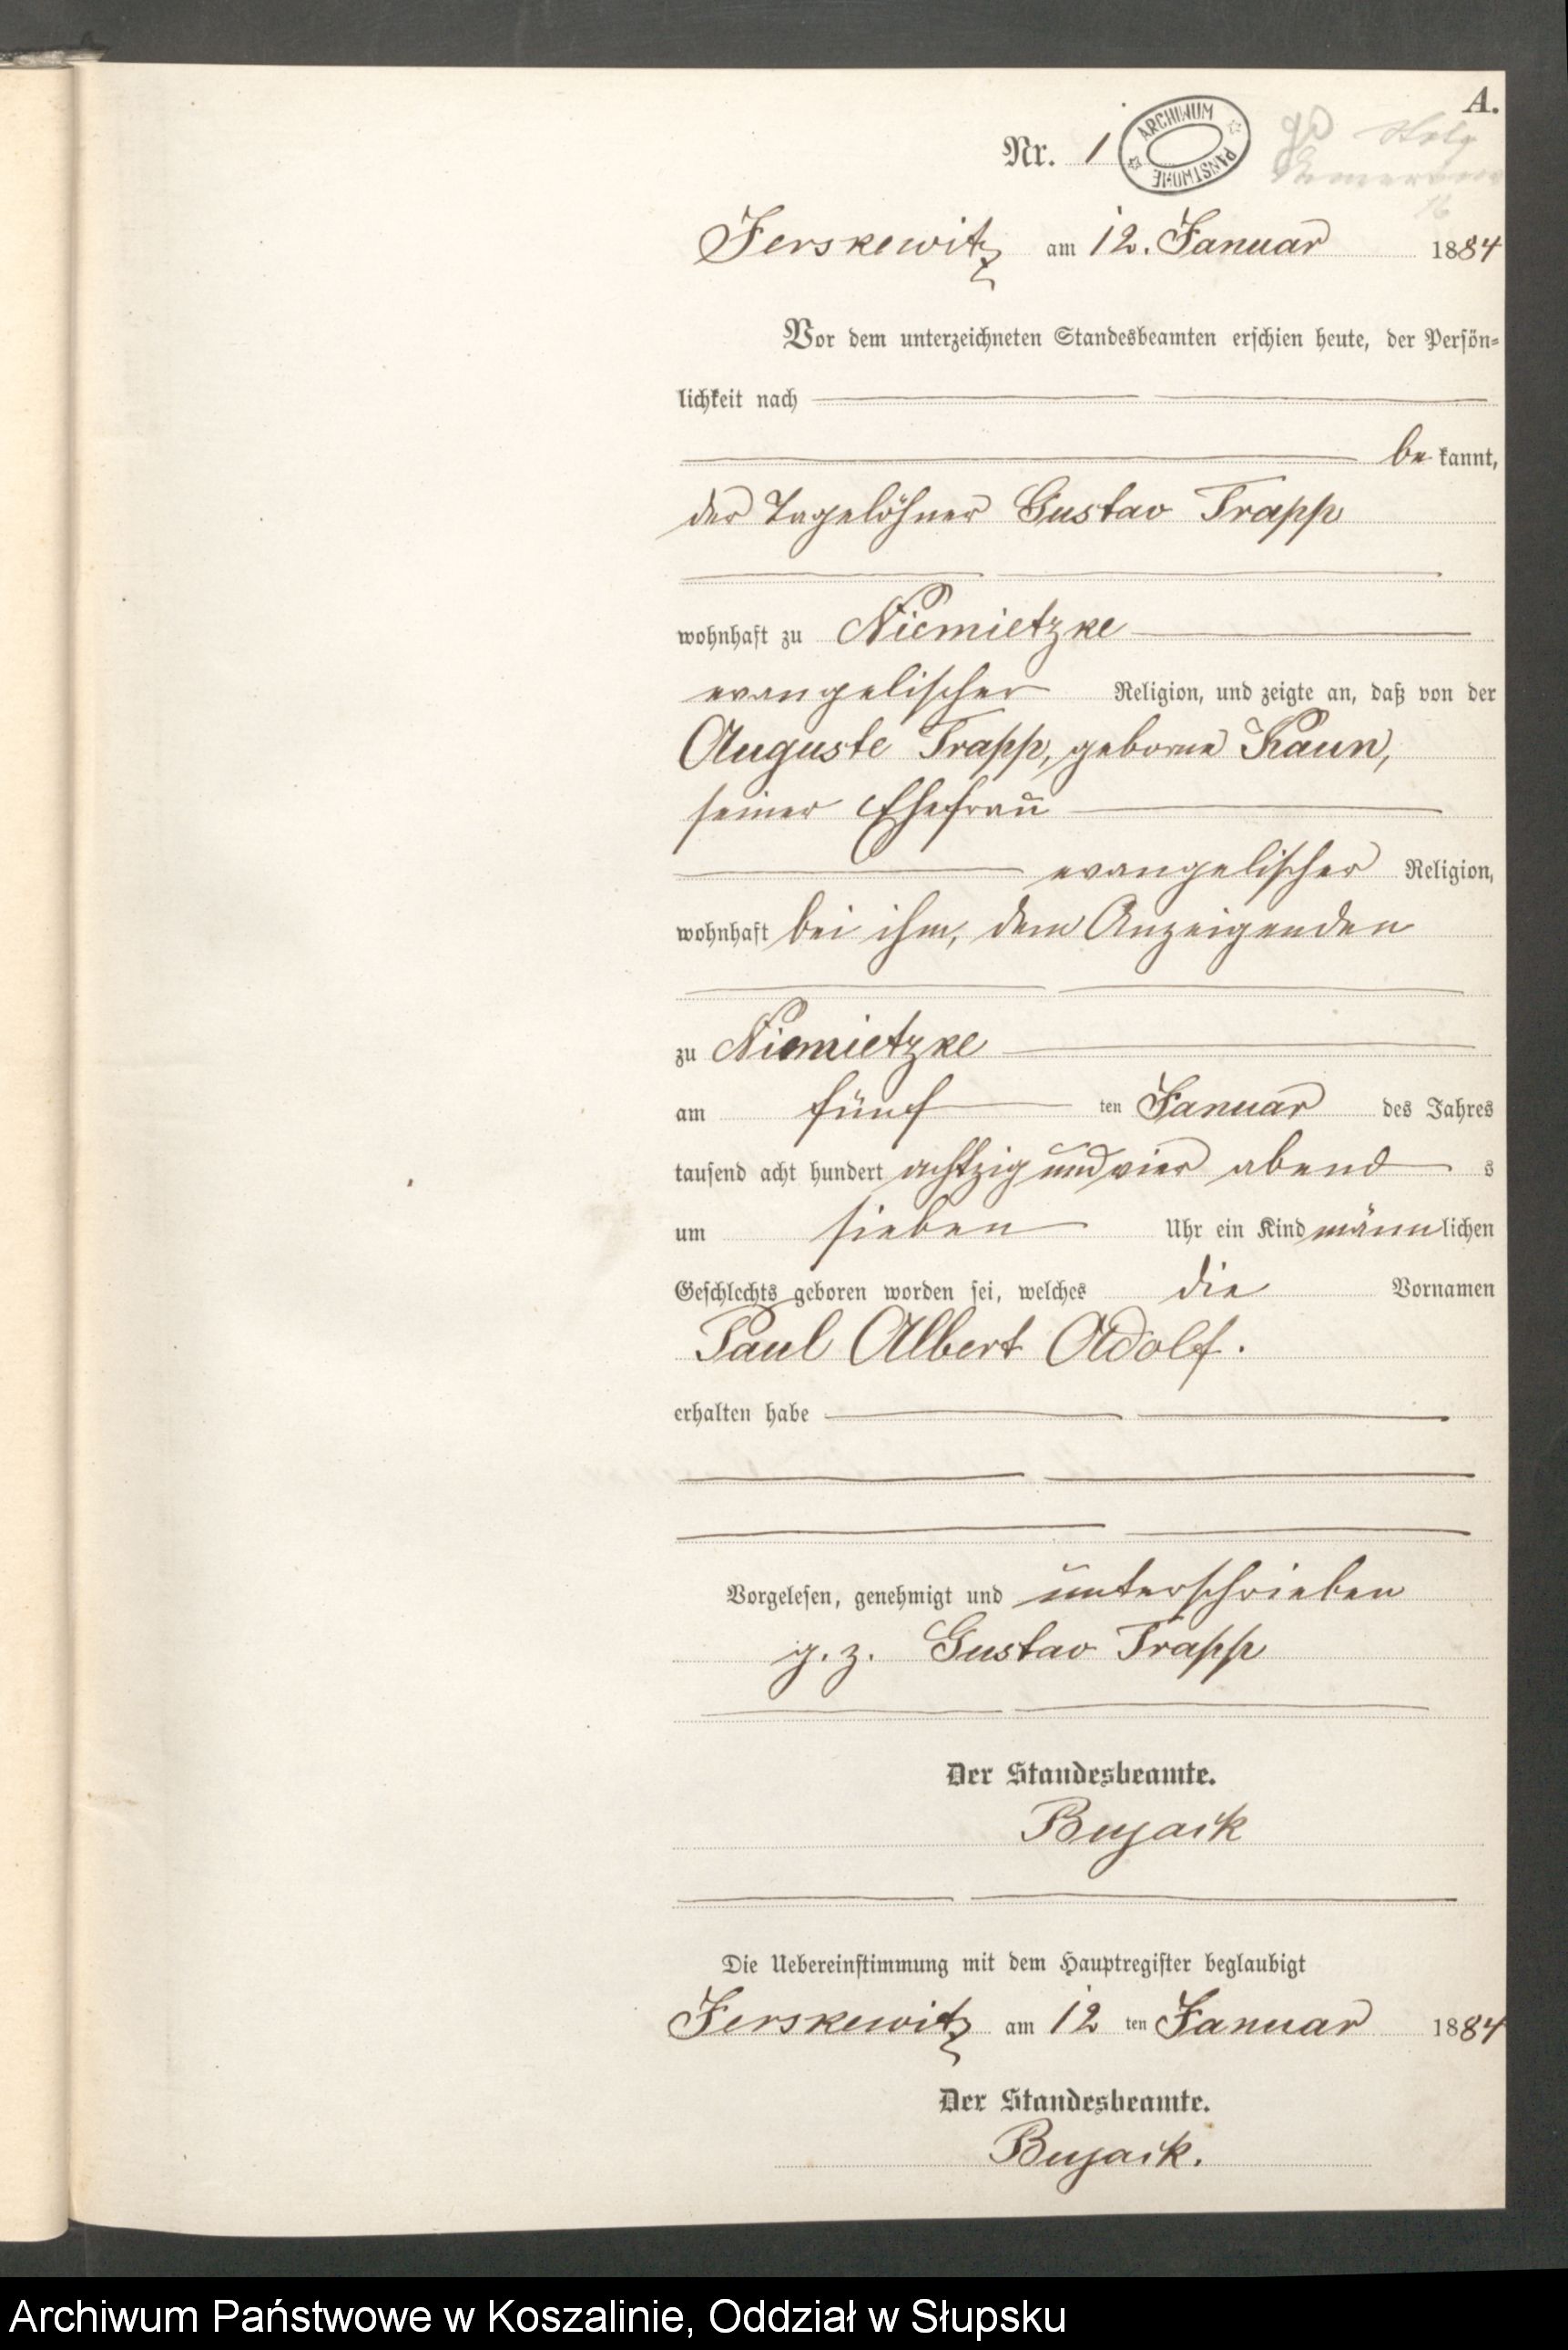 A.
Nr. 1
ARCHIWUM PAŃSTWOWE
Jerskewitz am 12. Januar 1884
Vor dem unterzeichneten Standesbeamten erschien heute, der Persön-
lichkeit nach
be kannt,
der Tagelöhner Gustav Trapp
wohnhaft zu Niemietzke
evangelischer Religion, und zeigte an, daß von der
Auguste Trapp, geborne Kaun,
seiner Ehefrau
evangelischer Religion,
wohnhaft bei ihm, dem Anzeigenden
zu Niemietzke
am fünf ten Januar des Jahres
tausend acht hundert achtzig und vier abend s
um sieben Uhr ein Kind männ lichen
Geschlechts geboren worden sei, welches die Vornamen
Paul Albert Adolf.
erhalten habe
Vorgelesen, genehmigt und unterschrieben
g. z. Gustav Trapp
Der Standesbeamte.
Bujack
Die Uebereinstimmung mit dem Hauptregister beglaubigt
Jerskewitz am 12 ten Januar 1884
Der Standesbeamte.
Bujack.
Archiwum Państwowe w Koszalinie, Oddział w Słupsku